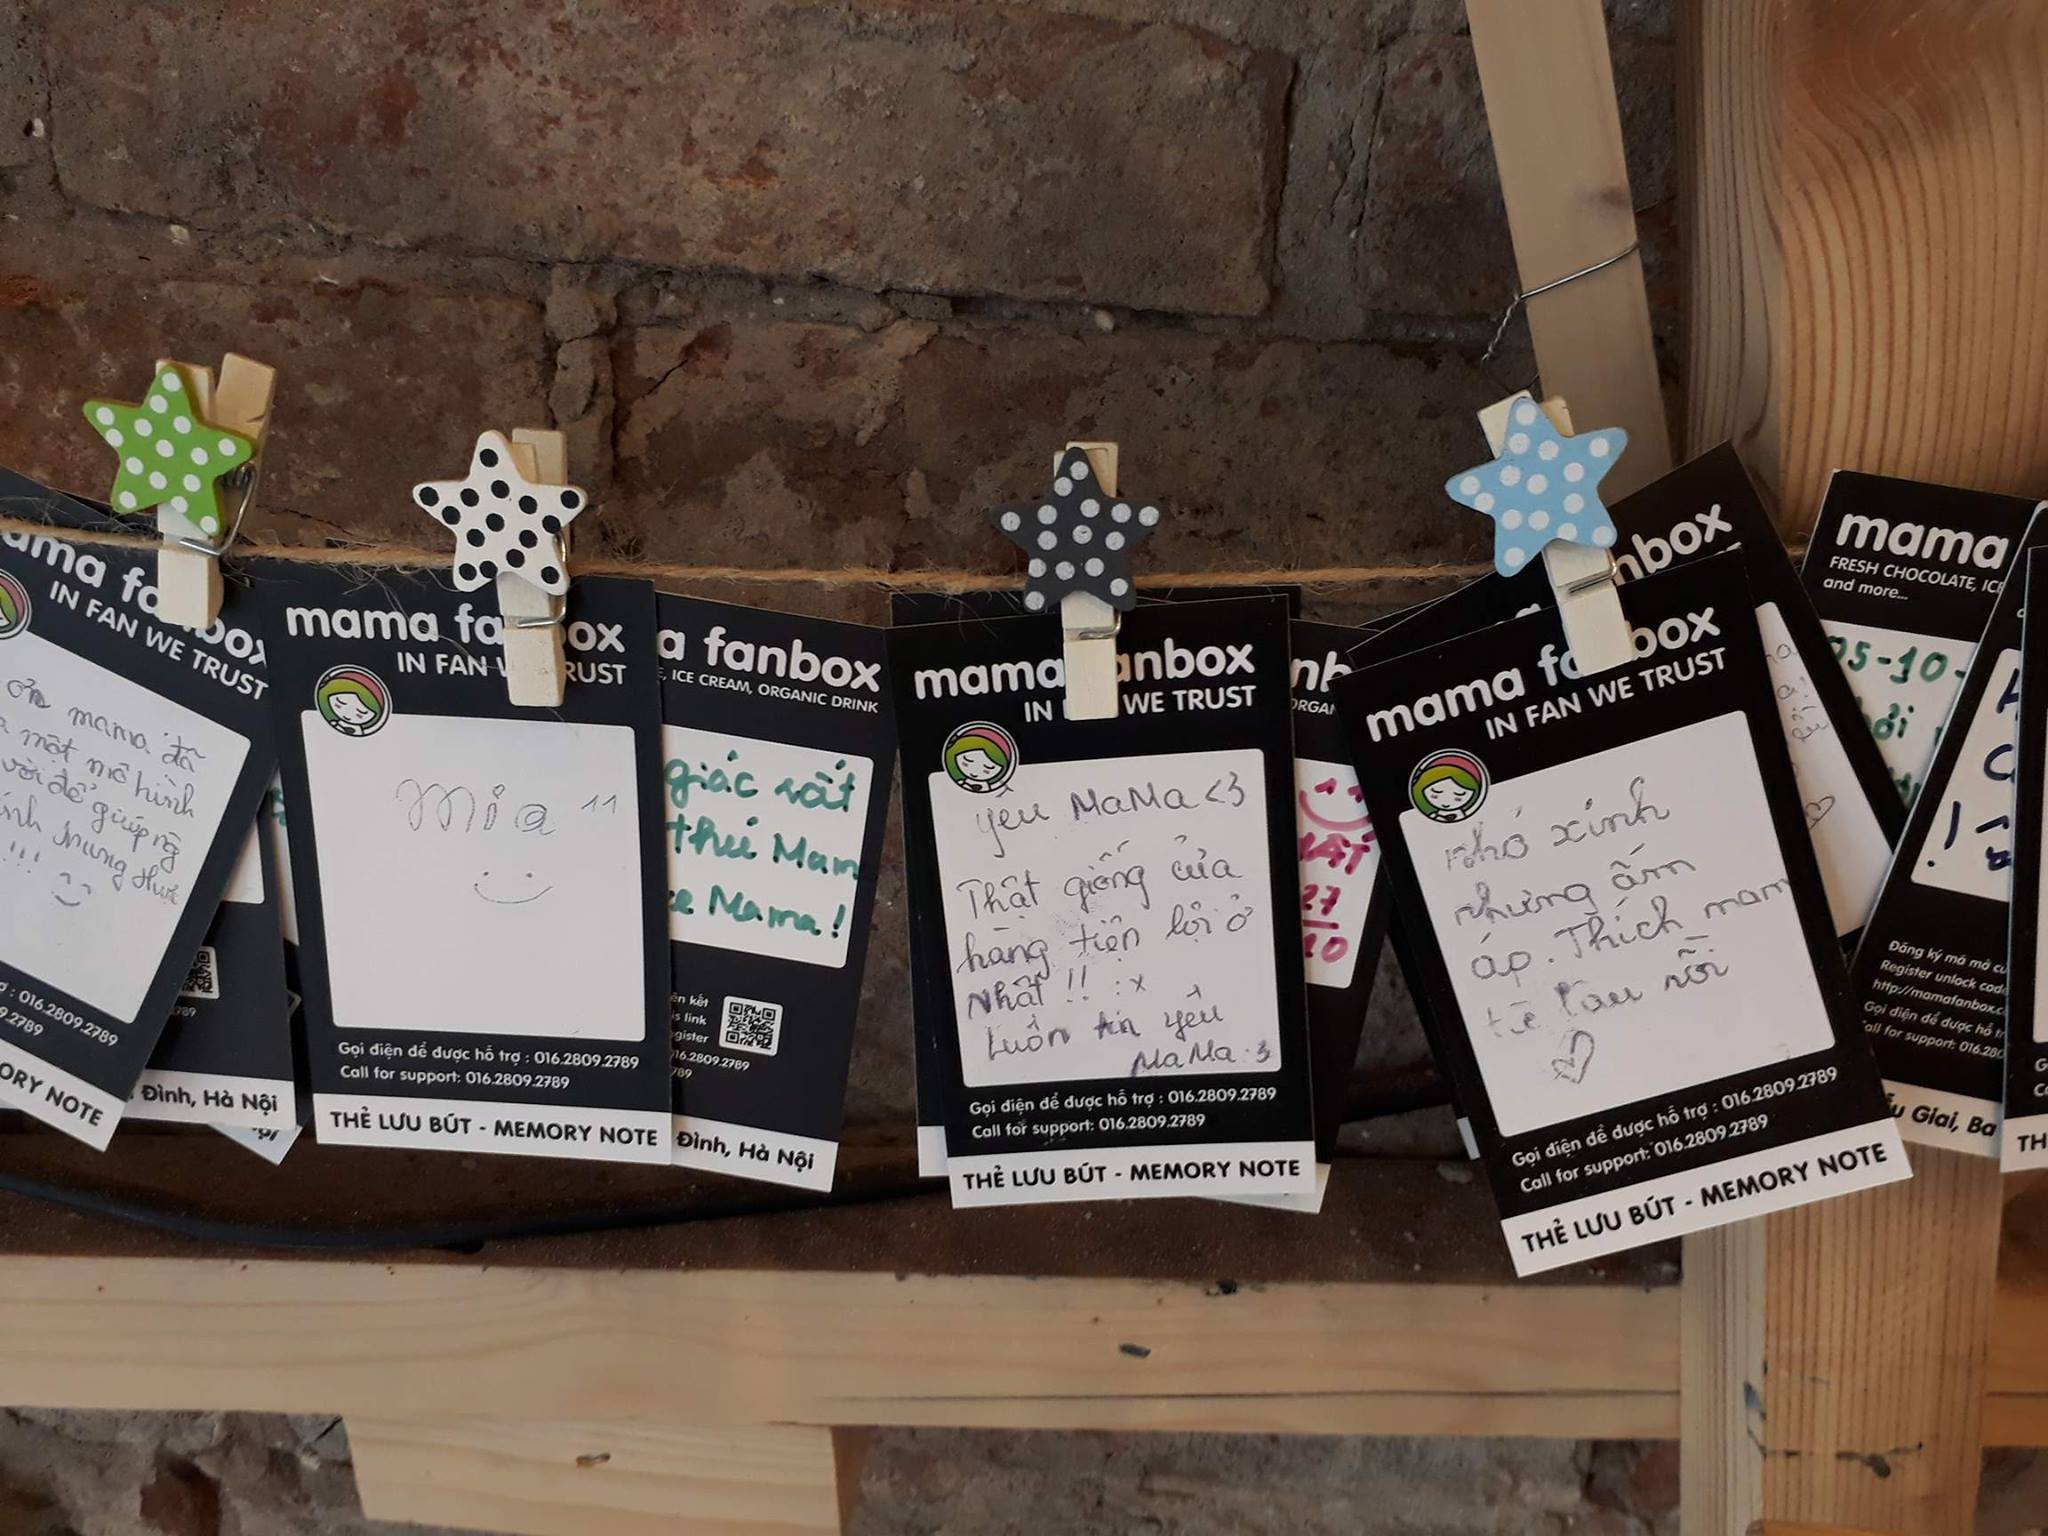 IN FAN WE TRUST
mama đã
một mô hình
để giúp
016.2809.2789
MEMORY NOTE
Đình, Hà Nội
mama
IN FAN
TRUST
Mia ^^
Gọi điện để được hỗ trợ : 016.2809.2789
Call for support: 016.2809.2789
THẺ LƯU BÚT - MEMORY NOTE
fanbox
ICE CREAM, ORGANIC DRINK
giác rất
thú Mam
Mama!
Đình, Hà Nội
mama
IN
WE TRUST
yêu MaMa <3
Thật giống cửa
hàng tiện lợi ở
Nhật !! :x
Luôn tin yêu
MaMa :3
Gọi điện để được hỗ trợ : 016.2809.2789
Call for support: 016.2809.2789
THẺ LƯU BÚT - MEMORY NOTE
27
10
mama
IN FAN WE TRUST
nhỏ xinh
nhưng ấm
áp. Thích mam
từ lâu rồi
Gọi điện để được hỗ trợ : 016.2809.2789
Call for support: 016.2809.2789
THẺ LƯU BÚT - MEMORY NOTE
mama
FRESH CHOCOLATE, ICE
and more...
05-10-
Đăng ký mã mở
Register unlock code
Gọi điện để được hỗ
Call for support: 016.28
Giai, Ba